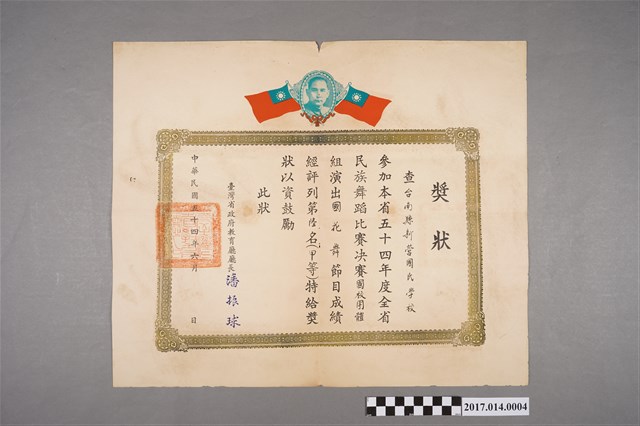 獎狀
查台南縣新營國民學校
參加本省五十四年度全省
民族舞蹈比賽決賽國校團體
組演出國花舞節目成績
經評列第陸名(甲等)特給獎
狀以資鼓勵
此狀
臺灣省政府教育廳廳長潘振球
中華民國五十四年六月 日
2017.014.0004